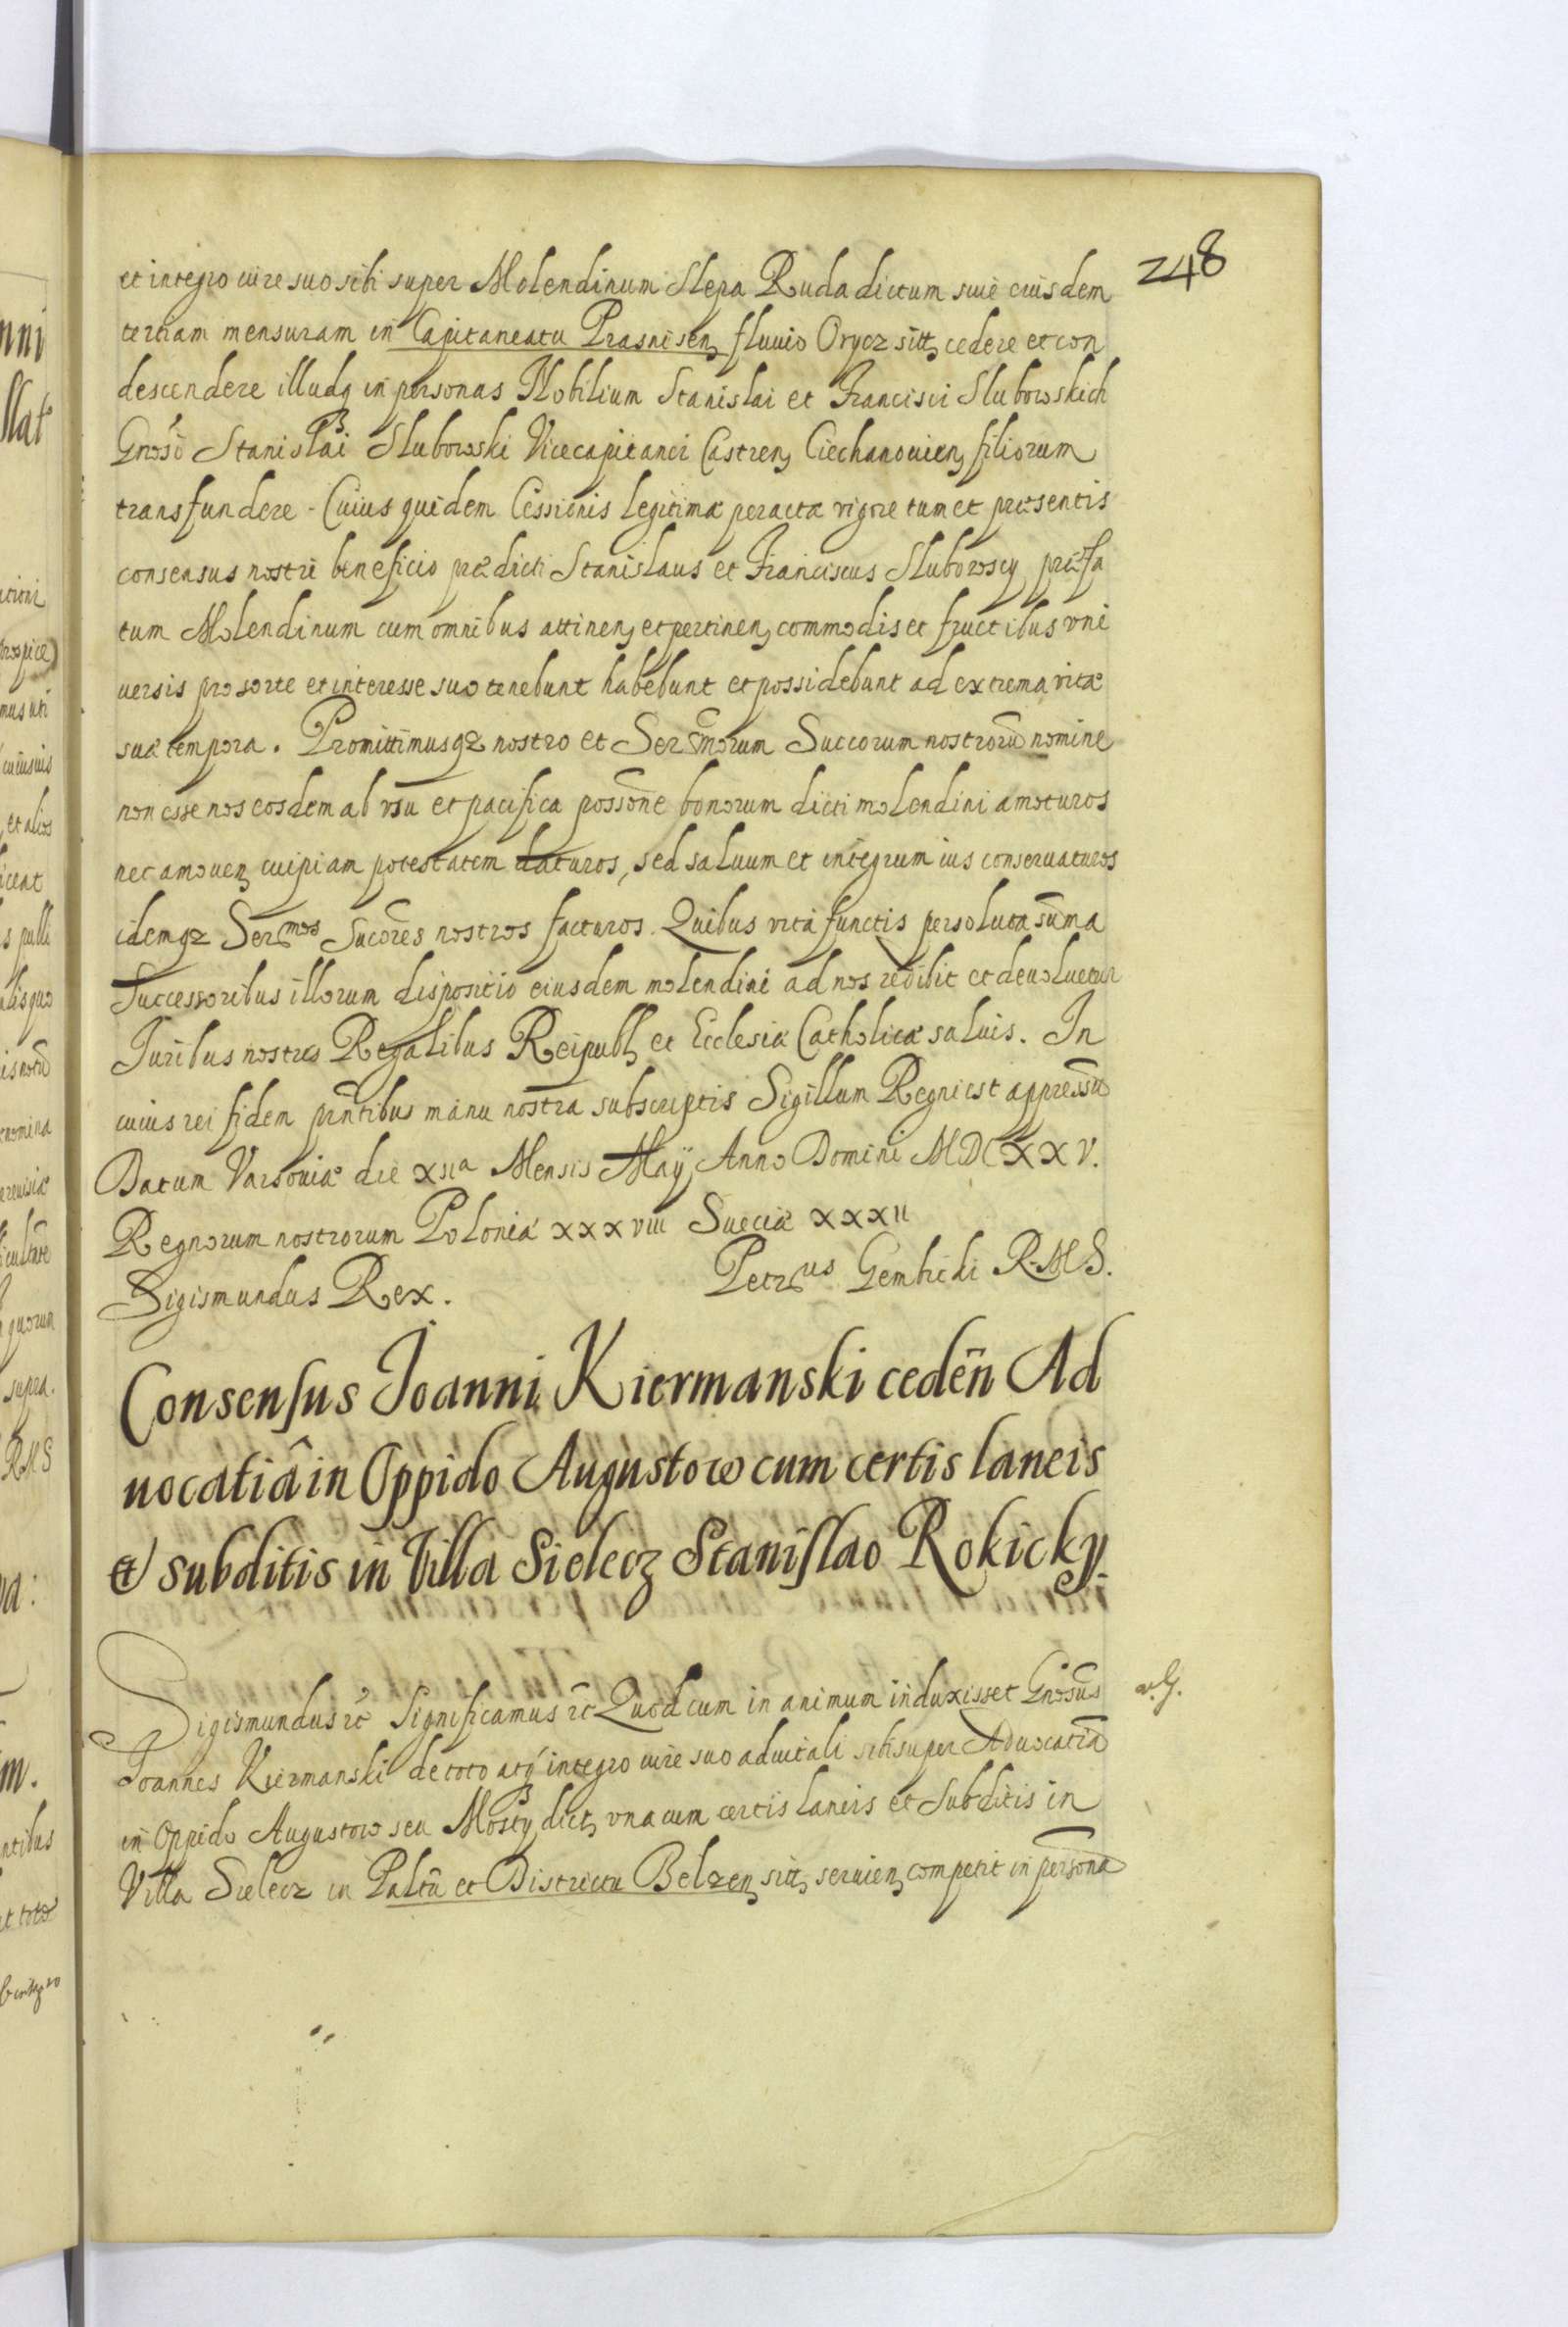 248
et integro iure suo sibi super Molendinum Slepa Ruda dictum siue eiusdem
tertiam mensuram in Capitaneatu Prasnisen fluuio Orycz sitt cedere et con
descendere illudq in personas Nobilium Stanislai et Francisci Slubowskich
Gnosi Stanislai Slubowski Vicecapitanei Castren Ciechanouien filiorum
transfundere. Cuius quidem Cessionis legitimæ peractæ vigore tum et præsentis
consensus nostri beneficio prædicti Stanislaus et Franciscus Slubowscy præfa
tum Molendinum cum omnibus attinen et pertinen commodis et fructibus vni
uersis pro sorte et interesse suo tenebunt habebunt et possidebunt ad extrema vitæ
suæ tempora. Promittimusqz nostro et Sermorum Succorum nostrorū nomine
non esse nos eosdem ab vsu et pacifica possōne bonorum dicti molendini amoturos
nec amouen cuipiam potestatem daturos, sed saluum et integrum ius conseruaturos
idemqz Sermos Sucōres nostros facturos. Quibus vita functis persoluta sūma
Successoribus illorum dispositio eiusdem molendini ad nos redibit et deuoluetur
Iuribus nostris Regalibus Reipubl et Ecclesiæ Catholicæ saluis. In
cuius rei fidem pn̄tibus manu nostra subscriptis Sigillum Regni est appressū
Datum Varsouiæ die XIIa Mensis Maÿ Anno Domini MDCXXV.
Regnorum nostrorum Poloniæ XXXVIII Sueciæ XXXII
Sigismundus Rex. Petrus Gembicki R.M.S.
Consensus Joanni Kiermanski ceden̄ Ad
uocatiâ in Oppido Augustow cum certis laneis
et subditis in Villa Sielecz Stanislao Rokicky.
Sigismundus etc̄ Significamus etc̄ Quod cum in animum induxisset Gnosus
v. G.
Joannes Kiermanski de toto atq integro iure suo aduitali sibi super Aduocatiā
in Oppido Augustow seu Mosty dict vna cum certis laneis et Subditis in
Villa Sielecz in Paltū et Districtu Belzen sitt seruien competit in personā